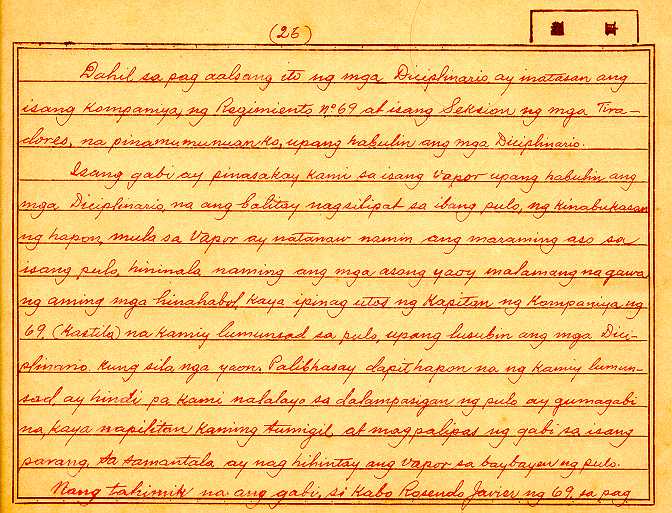 (26)
Dahil sa pag aalsang ito ng mga Diciplinario ay matasan ang
isang Kompaniya, ng Regimiento Nº 69 at isang Seksion ng mga Tira-
dores, na pinamumunuan ko, upang habulin ang mga Diciplinario.
Isang gabi ay pinasakay kami sa isang Vapor upang habulin ang
mga Diciplinario, na ang balitay nagsilipat sa ibang pulo, ng kinabukasan
ng hapon, mula sa Vapor ay natanaw namin ang maraming aso sa
isang pulo, hininala naming ang mga asong yaoy malamang na gawa
ng aming mga hinahabol, kaya ipinag utos ng Kapitan ng Kompaniya ng
69, (Kastila) na kamiy lumunsad sa pulo, upang lusubin ang mga Dici-
plinario. kung sila nga yaon. Palibhasay dapit hapon na ng kamiy lumun-
sad ay hindi pa kami nalalayo sa dalampasigan ng pulo ay gumagabi
na, kaya napilitan kaming tumigil at magpalipas ng gabi sa isang
parang, sa samantala ay nag hihintay ang Vapor sa baybayen ng pulo.
Nang tahimik na ang gabi, si Kabo Rosendo Javier ng 69, sa pag